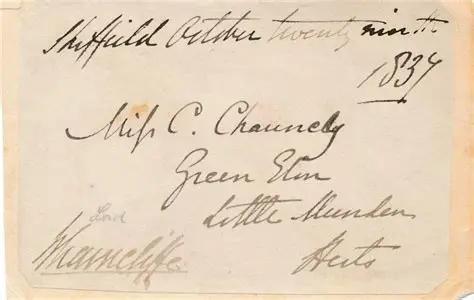 Sheffield October twenty ninth
1837
Miss C. Chauncey
Green Elm
Little Munden
Lord
Wharncliffe
Herts